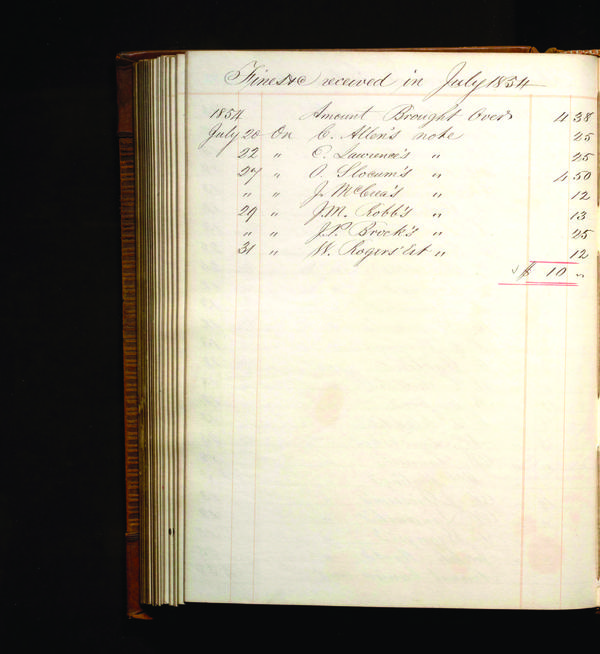 Fines &c received in July 1854
1854 Amount Brought Over 4 38
July 20 On C. Allen's note 25
22 " C. Lawrence's " 25
27 " O. Slocum's " 4 50
" " J. McCrea's " 12
29 " J.M. Robb's " 13
" " J.P. Brock's " 25
31 " W. Rogers' Est " 12
$ 10 "